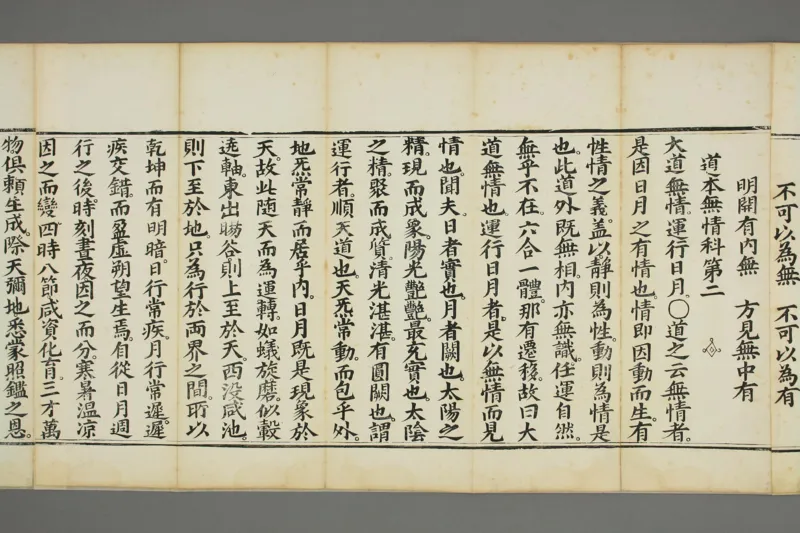 不可以為無　不可以為有
明開有內無　方見無中有
道本無情科第二
大道無情。運行日月。○道之云無情者。
是因日月之有情也。情即因動而生。有
性情之義。蓋以靜則為性。動則為情。是
也。此道外既無相。內亦無識。任運自然。
無乎不在。六合一體。那有遷移。故曰大
道無情也。運行日月者。是以無情而見
情也。聞夫日者實也。月者闕也。太陽之
精。現而成象。陽光艷艷。最充實也。太陰
之精。聚而成質。清光湛湛。有圓闕也。謂
運行者。順天道也。天炁常動。而包乎外。
地炁常靜。而居乎內。日月既是現象於
天。故此隨天而為運轉。如蟻旋磨。似轂
遶軸。東出暘谷。則上至於天。西沒咸池。
則下至於地。只為行於兩界之間。所以
乾坤而有明暗。日行常疾。月行常遲。遲
疾交錯。而盈虛朔望生焉。自從日月週
行之後。時刻晝夜因之而分。寒暑溫凉
因之而變。四時八節。咸資化育。三才萬
物。俱賴生成。際天彌地。悉蒙照鑑之恩。